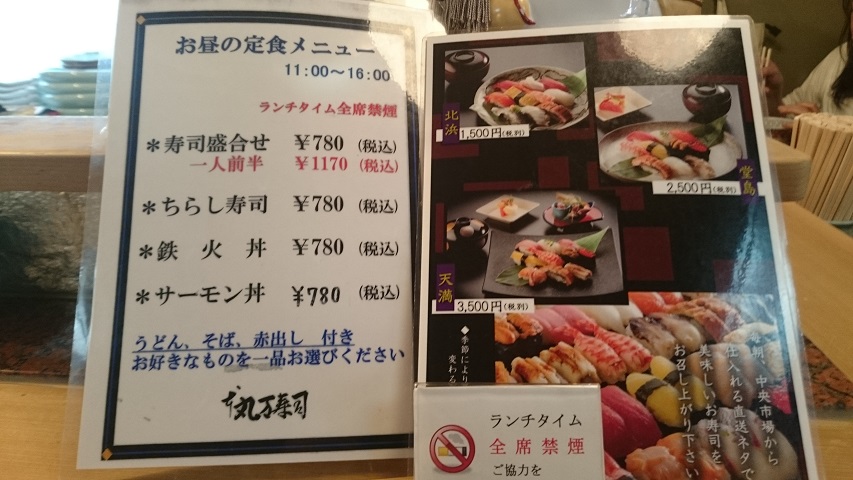 お昼の定食メニュー
11:00～16:00
ランチタイム全席禁煙
＊寿司盛合せ ￥780 (税込)
一人前半 ￥1170 (税込)
＊ちらし寿司 ￥780 (税込)
＊鉄火丼 ￥780 (税込)
＊サーモン丼 ￥780 (税込)
うどん、そば、赤出し 付き
お好きなものを一品お選びください
丸万寿司
北浜
1,500円(税別)
堂島
2,500円(税別)
天満
3,500円(税別)
◆季節により
変わる
毎朝、中央市場から
仕入れる直送ネタで
美味しいお寿司を
お召し上がり下さい
ランチタイム
全席禁煙
ご協力を